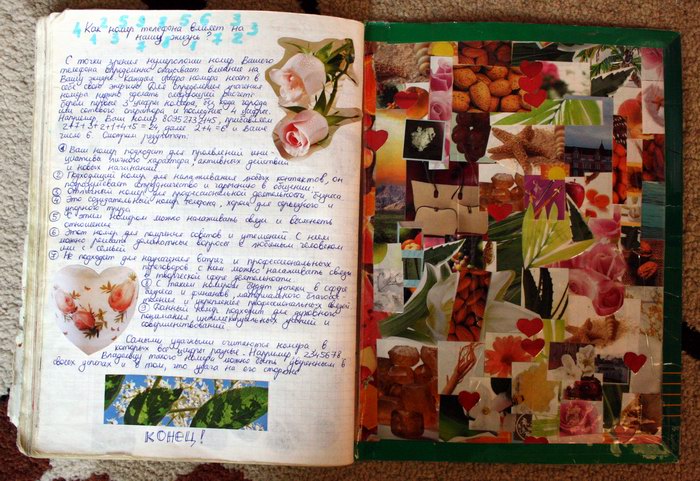 4 2 5 3 3 5 5 6 3 3
Как номер телефона влияет на
нашу жизнь?
С точки зрения нумерологии номер Вашего
телефона определенно оказывает влияние на
Вашу жизнь. Каждая цифра номера несет в
себе свою энергию. Для определения значения
номера нужно сделать следующий расчет:
берем первые 3 цифры номера, без кода города
или сотового оператора и последние 4 цифры.
Например, Ваш номер 80352733145, прибавляем
2+7+3+2+1+4+5=24, далее 2+4=6 и Ваше
число 6. Смотрим результат:
① Ваш номер подходит для проявлений ини
циатива личного характера, активных действий
и новых начинаний
② Подходящий номер для налаживания любых контактов, он
подразумевает сотрудничество и гармонию в общении
③ Отличный номер для профессиональной деятельности, бизнеса
④ Это созидательный номер телефона, хорош для серьезного и
нудного труда.
⑤ С этим номером можно налаживать связи и выяснять
отношения
⑥ Этот номер для получения советов и утешений. С ним
можно решать деликатные вопросы с любимым человеком
или с семьей
⑦ Не подходит для назначения встреч и профессиональных
переговоров с ним можно налаживать связи
в творческой сфере деятельности
⑧ С таким номером будут успехи в сфере
бизнеса и финансов, материального благосо-
стояния и укрепления профессиональных связей
⑨ Данный номер подходит для духовного
познания интеллектуальных умений и
совершенствований
Самыми удачными считаются номера в
которых все цифры разные. Например, 2345678
Владелец такого номера может быть уверенным в
своих успехах и в том, что удача на его стороне
КОНЕЦ!